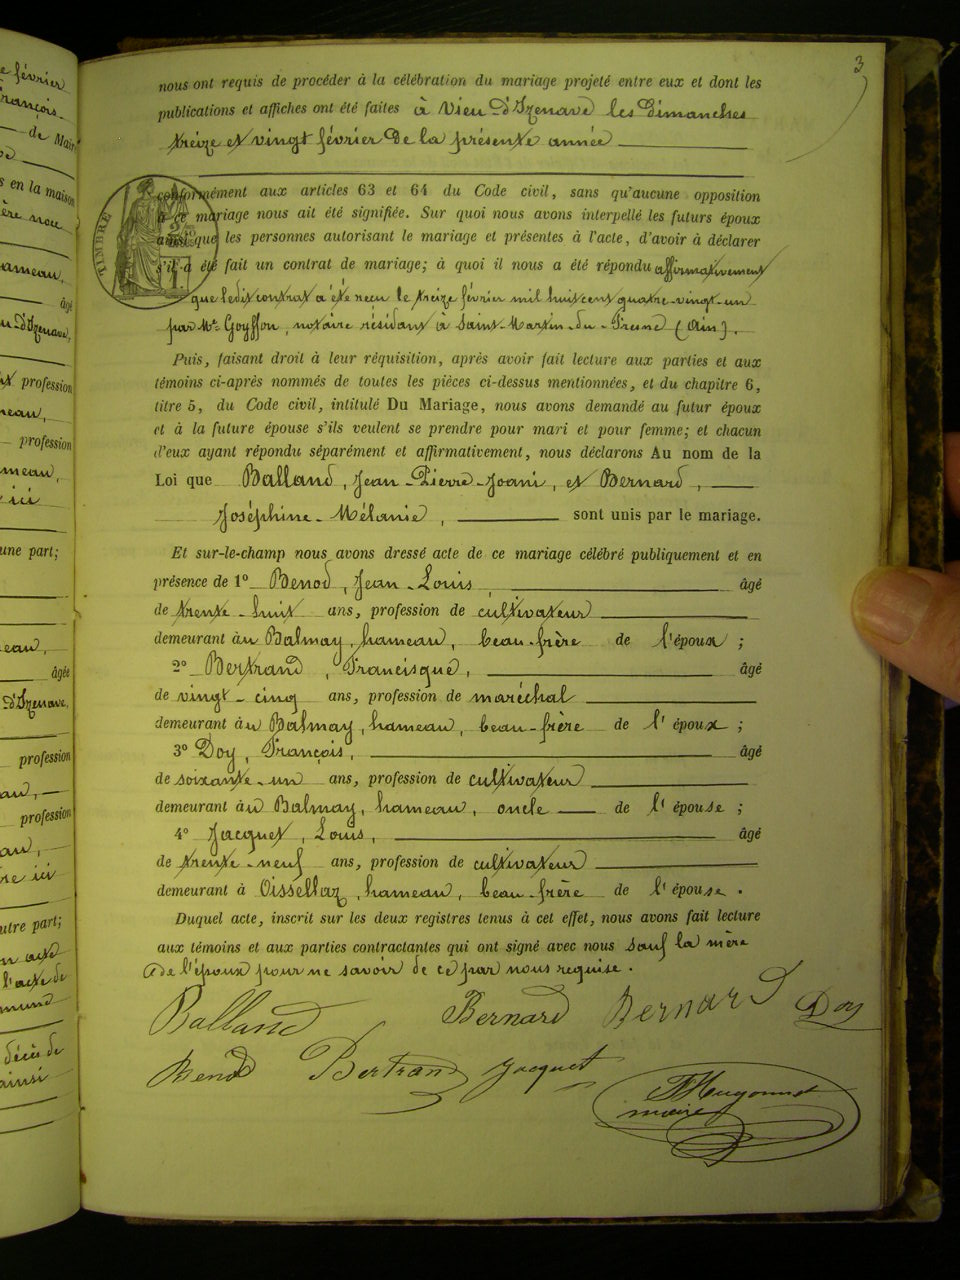 3
nous ont requis de procéder à la célébration du mariage projeté entre eux et dont les
publications et affiches ont été faites à Vieu-d'Izenave les dimanches
treize et vingt février de la présente année
conformément aux articles 63 et 64 du Code civil, sans qu'aucune opposition
à ce mariage nous ait été signifiée. Sur quoi nous avons interpellé les futurs époux
ainsi que les personnes autorisant le mariage et présentes à l'acte, d'avoir à déclarer
s'il a été fait un contrat de mariage; à quoi il nous a été répondu affirmativement
que ledit contrat a été reçu le treize février mil huit cent quatre-vingt-un
par Me Goyffon, notaire résidant à Saint-Martin-du-Fresne (Ain).
TIMBRE
Puis, faisant droit à leur réquisition, après avoir fait lecture aux parties et aux
témoins ci-après nommés de toutes les pièces ci-dessus mentionnées, et du chapitre 6,
titre 5, du Code civil, intitulé Du Mariage, nous avons demandé au futur époux
et à la future épouse s'ils veulent se prendre pour mari et pour femme; et chacun
d'eux ayant répondu séparément et affirmativement, nous déclarons Au nom de la
Loi que Balland, Jean-Pierre-Joani, et Bernard,
Joséphine-Mélanie, sont unis par le mariage.
Et sur-le-champ nous avons dressé acte de ce mariage célébré publiquement et en
présence de 1o Benod, Jean-Louis, âgé
de trente-huit ans, profession de cultivateur
demeurant au Balmay, hameau, beau-frère de l'époux ;
2o Bertrand, Francisque, âgé
de vingt-cinq ans, profession de maréchal
demeurant au Balmay, hameau, beau-frère de l'époux ;
3o Doy, François, âgé
de soixante-un ans, profession de cultivateur
demeurant au Balmay, hameau, oncle de l'épouse ;
4o Jacquet, Louis, âgé
de trente-neuf ans, profession de cultivateur
demeurant à Oissellaz, hameau, beau-frère de l'épouse.
Duquel acte, inscrit sur les deux registres tenus à cet effet, nous avons fait lecture
aux témoins et aux parties contractantes qui ont signé avec nous sauf la mère
de l'époux pour ne savoir de ce par nous requise.
Balland Bernard Bernard Doy
Benod Bertrand Jacquet
Hugonnet
maire